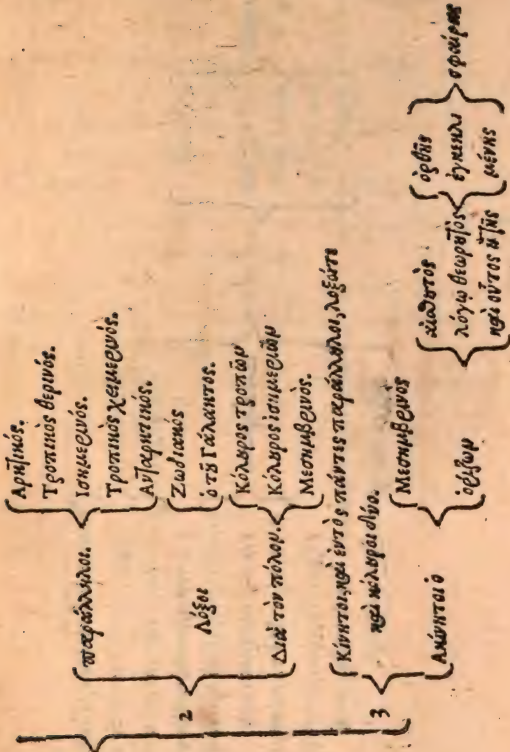 παράλληλοι.
Ἀρκτικός.
Τροπικὸς θερινός.
Ισημερινός.
Τροπικὸς χειμερινός.
Ανταρκτικός.
2
Λόξοι
Ζωδιακὸς
ὁ τοῦ Γάλακτος.
Διὰ τὸν πόλον.
Κόλυρος τροπῶν
Κόλυρος ἰσημεριῶν
Μεσημβρινός.
3
Κίνητοι, καὶ ἐντὸς πάντες παράλληλοι, λοξῶτε
καὶ κόλυροι δύο.
Ακίνητοι ὁ
Μεσημβρινὸς
ὁρίζων
αἰσθητὸς
λόγῳ θεωρητὸς
καὶ οὗτος ἢ τῆς
ὀρθῆς
ἐγκεκλι
μένης
σφαίρης